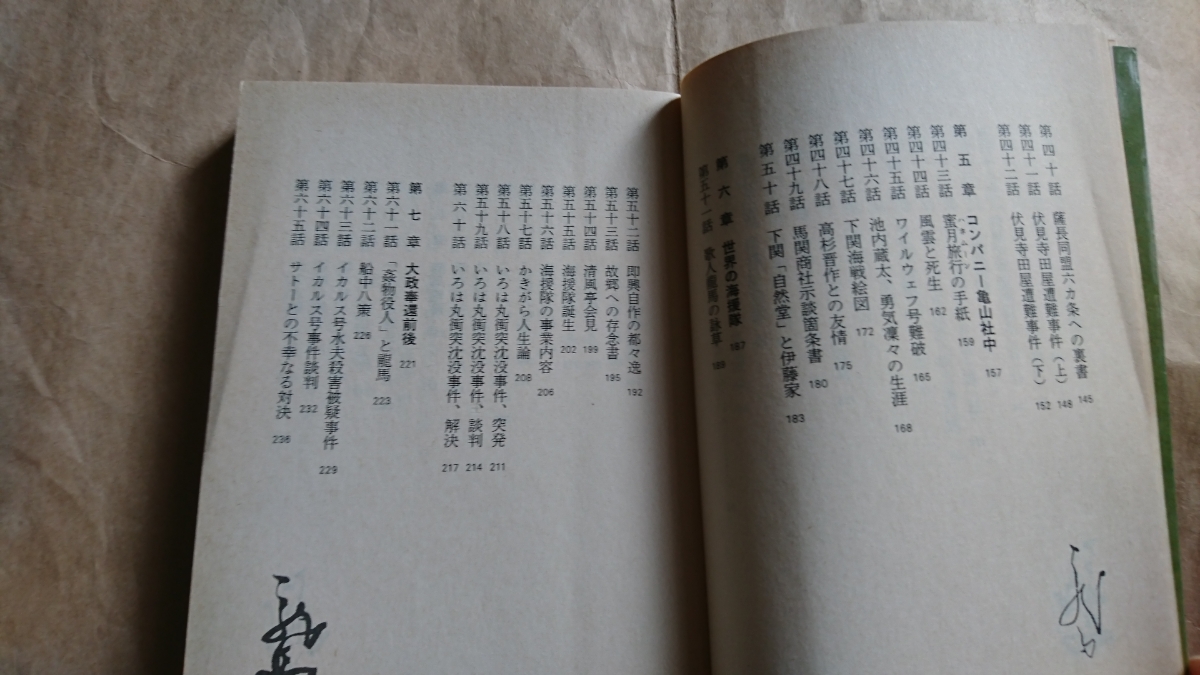 第四十話 薩長同盟六カ条への裏書 145
第四十一話 伏見寺田屋遭難事件（上） 148
第四十二話 伏見寺田屋遭難事件（下） 152
第五章 コンパニー亀山社中 157
第四十三話 蜜月旅行の手紙 159
第四十四話 風雲と死生 162
第四十五話 ワイルウェフ号難破 165
第四十六話 池内蔵太、勇気凜々の生涯 168
第四十七話 下関海戦絵図 172
第四十八話 高杉晋作との友情 175
第四十九話 馬関商社示談箇条書 180
第五十話 下関「自然堂」と伊藤家 183
第六章 世界の海援隊 187
第五十一話 歌人龍馬の詠草 189
第五十二話 即興自作の都々逸 192
第五十三話 故郷への存念書 195
第五十四話 清風亭会見 199
第五十五話 海援隊誕生 202
第五十六話 海援隊の事業内容 206
第五十七話 かきがら人生論 208
第五十八話 いろは丸衝突沈没事件、突発 211
第五十九話 いろは丸衝突沈没事件、談判 214
第六十話 いろは丸衝突沈没事件、解決 217
第七章 大政奉還前後 221
第六十一話 「姦物役人」と龍馬 223
第六十二話 船中八策 226
第六十三話 イカルス号水夫殺害被疑事件 229
第六十四話 イカルス号事件談判 232
第六十五話 サトーとの不幸なる対決 236